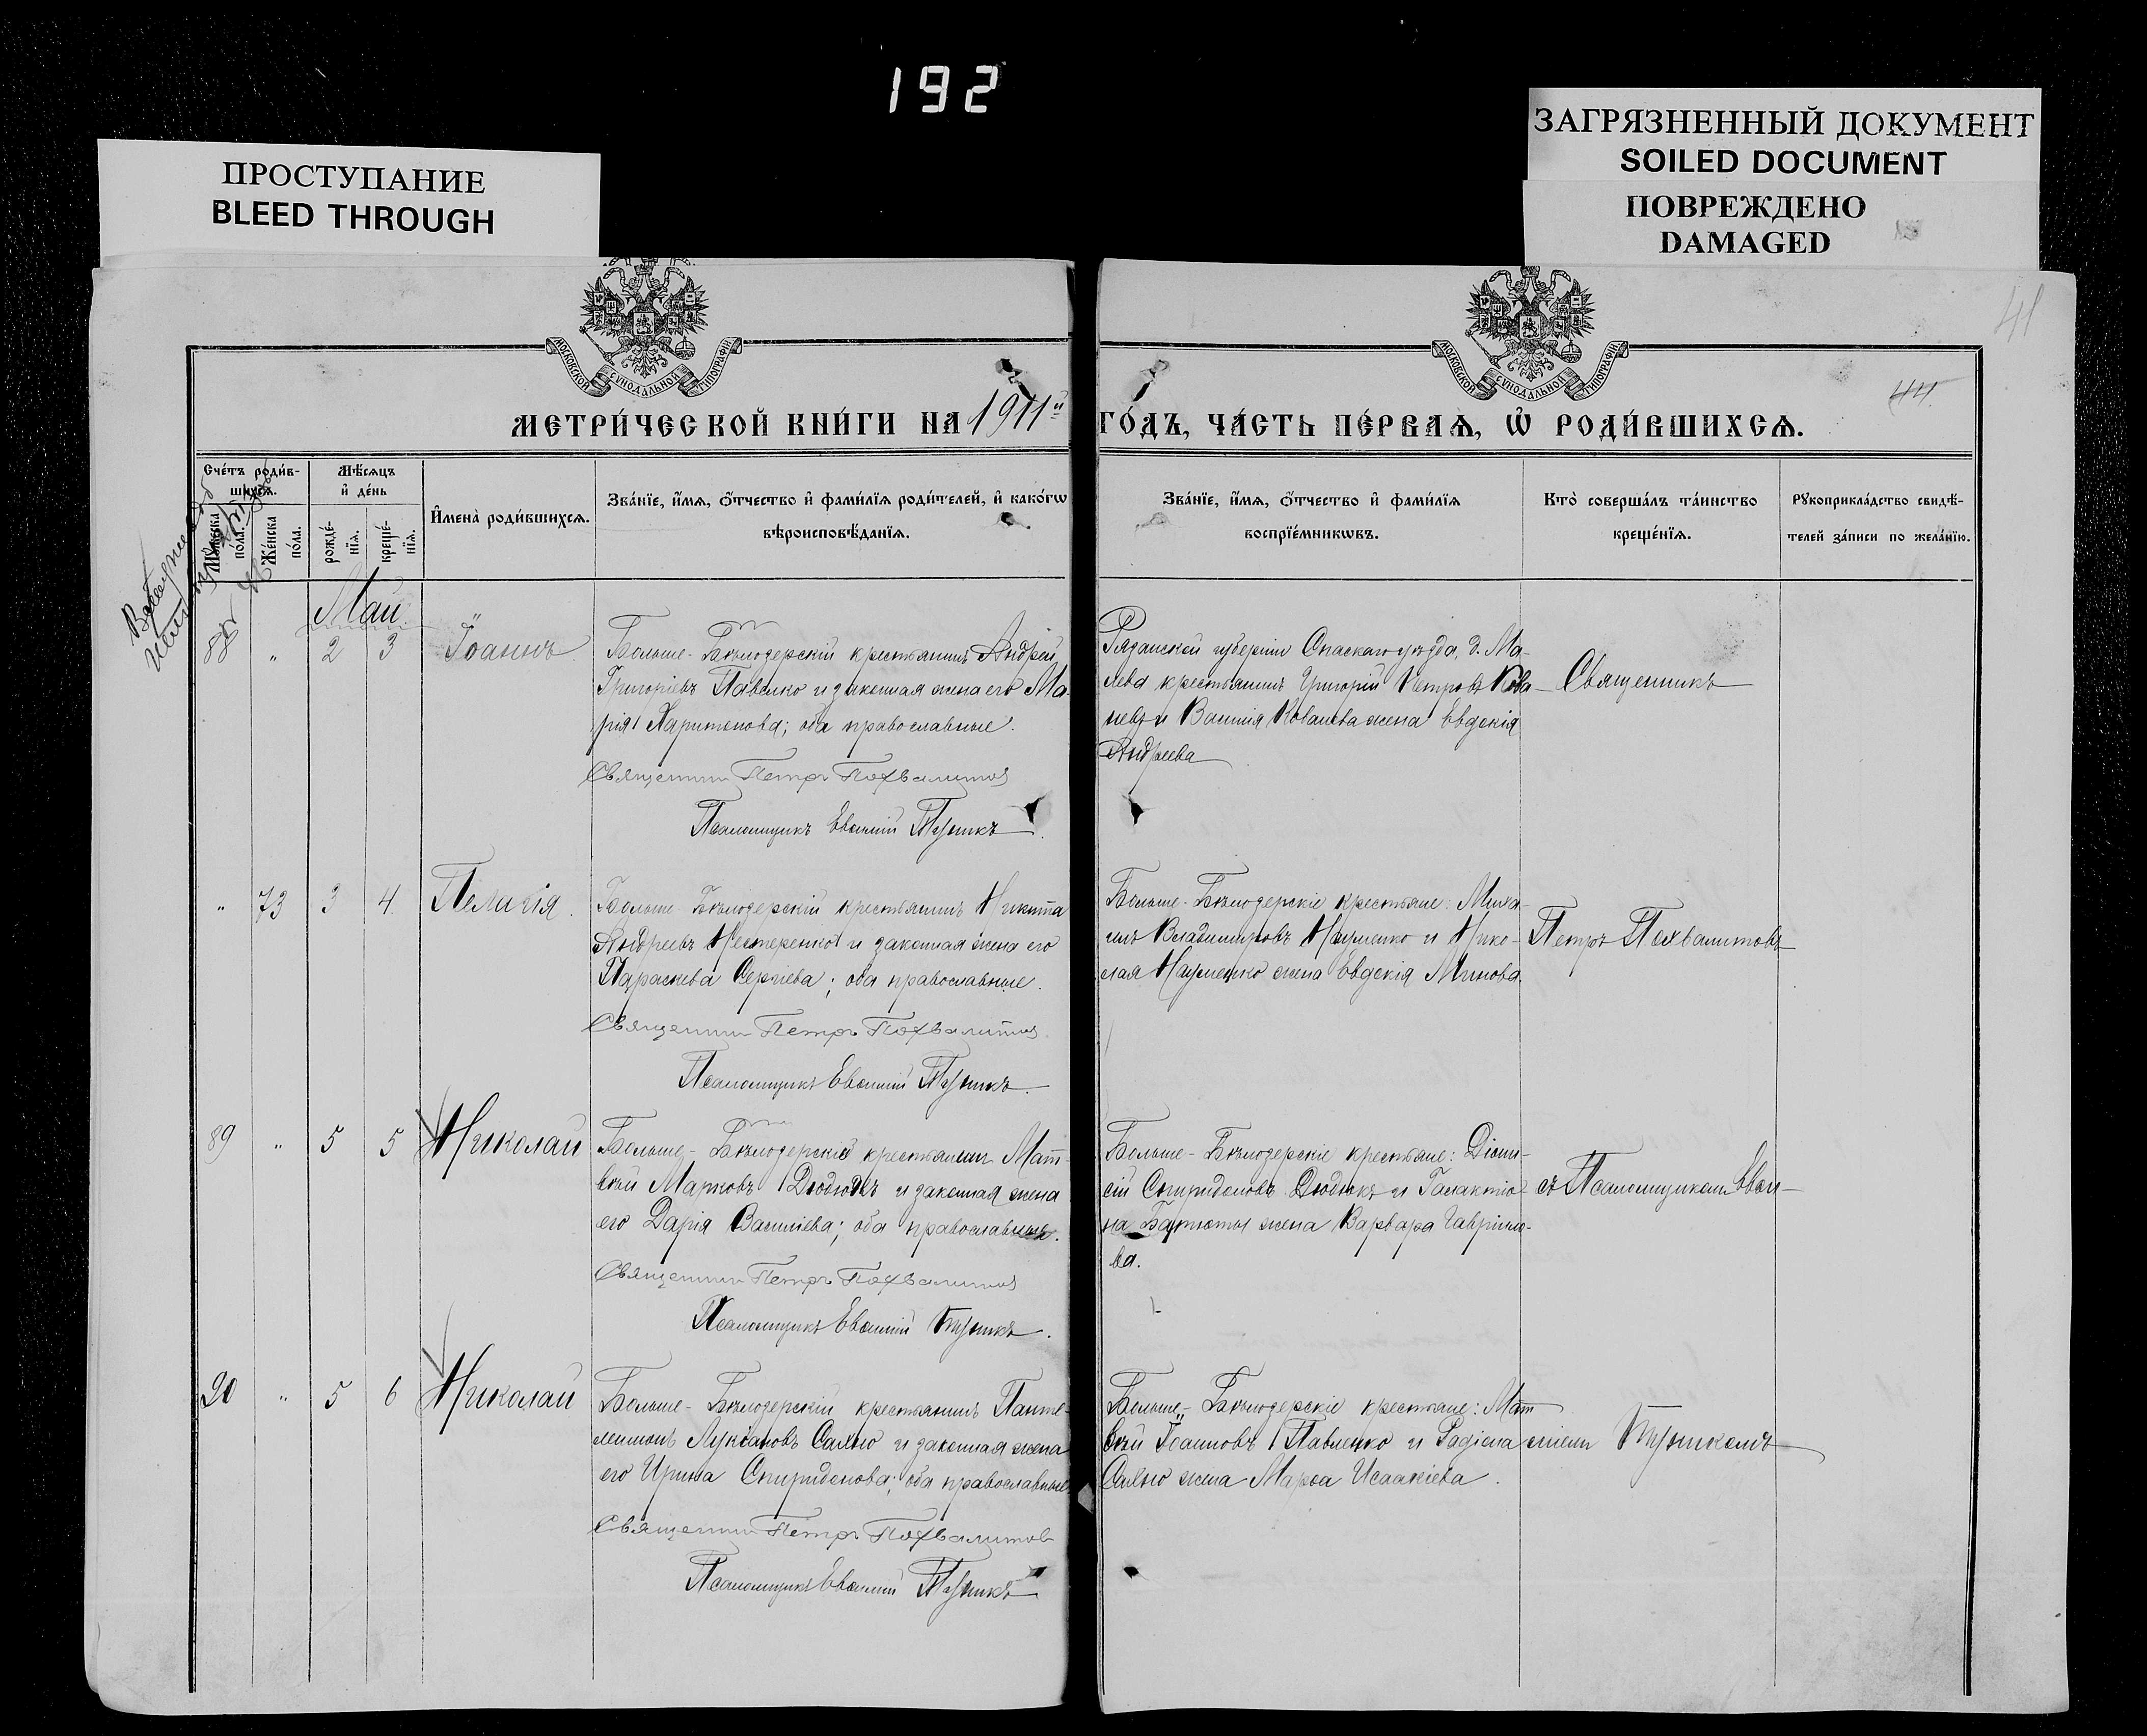 192
ПРОСТУПАНИЕ
BLEED THROUGH
ЗАГРЯЗНЕННЫЙ ДОКУМЕНТ
SOILED DOCUMENT
ПОВРЕЖДЕНО
DAMAGED
41
44
МОСКОВСКОЙ СѴНОДАЛЬНОЙ ТИПОГРАФІИ
МОСКОВСКОЙ СѴНОДАЛЬНОЙ ТИПОГРАФІИ
МЕТРИ́ЧЕСКОЙ КНИ́ГИ НА 1911й
ГО́ДЪ, ЧА́СТЬ ПЕ́РВАѦ, Ѽ РОДИ́ВШИХСѦ.
Сче́тъ роди́в-
шихсѧ.
Мꙋ́жеска по́ла.
Же́нска по́ла.
Мѣ́сѧцъ
и҆ де́нь
рожде́-
нїѧ.
креще́-
нїѧ.
И҆мена̀ роди́вшихсѧ.
Зва́нїе, и҆́мѧ, ѻ҆́тчество и҆ фами́лїѧ роди́телей, и҆ како́гѡ
вѣроисповѣ́данїѧ.
Зва́нїе, и҆́мѧ, ѻ҆́тчество и҆ фами́лїѧ
воспрїе́мникѡвъ.
Кто̀ соверша́лъ та́инство
креще́нїѧ.
Рꙋкоприкла́дство свидѣ́-
телей за́писи по жела́нїю.
Май
88 " 2 3 Іоаннъ
Больше-Бѣлозерскій крестьянинъ Андрей
Григоріевъ Павленко и законная жена его Ма-
рія Харитонова; оба православные.
Священник Петръ Похвалитов
Псаломщикъ Евѳимій
Рязанской губерніи Спаскаго уѣзда, д. Ма-
лева крестьянинъ Григорій Петровъ Кова-
левъ и Василія Ковалева жена Евдокія
Андреева
Священникъ
" 73 3 4 Пелагія
Больше-Бѣлозерскій крестьянинъ Никита
Андреевъ Нестеренко и законная жена его
Параскева Сергіева; оба православные.
Священник Петръ Похвалитов
Псаломщикъ Евѳимій
Больше-Бѣлозерскіе крестьяне: Миха-
илъ Владиміровъ Науменко и Нико-
лая Науменко жена Евдокія Минова.
Петръ Похвалитовъ
89 " 5 5 Николай
Больше-Бѣлозерскій крестьянин Мат-
вѣй Марковъ Дюдюкъ и законная жена
его Дарія Василіева; оба православные.
Священник Петръ Похвалитов
Псаломщикъ Евѳимій
Больше-Бѣлозерскіе крестьяне: Діони-
сій Спиридоновъ Дюдюкъ и Галактіо-
на жена Варвара Гавріило-
ва.
съ Псаломщикомъ Евѳи-
90 " 5 6 Николай
Больше-Бѣлозерскій крестьянинъ Панте-
леимонъ Лукіановъ Сално и законная жена
его Ирина Спиридонова; оба православные
Священник Петръ Похвалитов
Псаломщикъ Евѳимій
Больше-Бѣлозерскіе крестьяне: Мат-
вѣй Іоанновъ Павленко и Родіона
Сално жена Марѳа Исаакіева.
міемъ